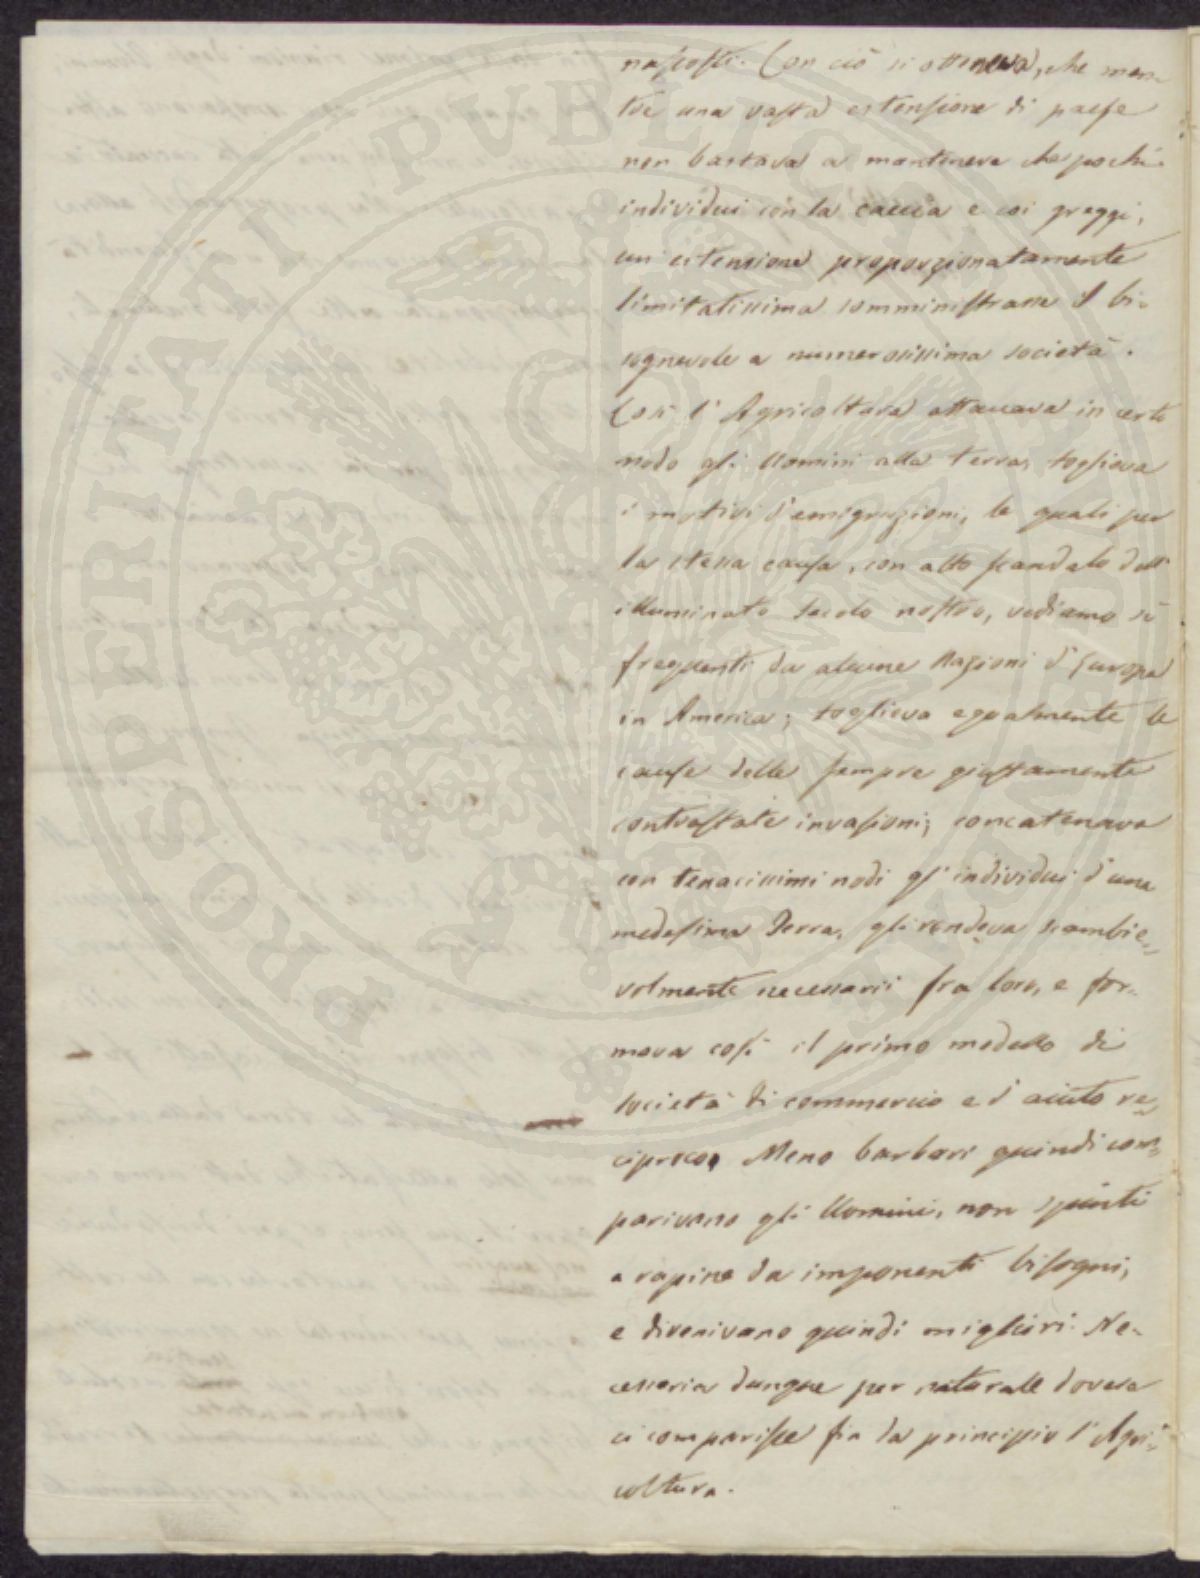 nascosti. Con ciò si otteneva, che men-
tre una vasta estensione di paese
non bastava a mantenere che pochi
individui con la caccia e coi greggi,
un' estensione proporzionatamente
limitatissima somministrasse il bi-
sognevole a numerosissima società.
Così l' Agricoltura attaccava in certo
modo gli Uomini alla terra, toglieva
i motivi d'emigrazioni, le quali per
la stessa causa, con alto scandalo dell'
illuminato secolo nostro, vediamo sì
frequenti da alcune Nazioni d'Europa
in America; toglieva egualmente le
cause delle sempre giustamente
contrastate invasioni; concatenava
con tenacissimi nodi gl' individui d'una
medesima Terra, gli rendeva scambie-
volmente necessarii fra loro, e for-
mava così il primo modello di
società di commercio e d' aiuto re-
ciproco. Meno barbari quindi com-
parivano gli Uomini, non spinti
a rapine da imponenti bisogni,
e divenivano quindi migliori. Ne-
cessaria dunque per naturale dovere
ci comparisce fin da principio l' Agri-
coltura.
PROSPERITATI PUBLICAE AUGENDAE